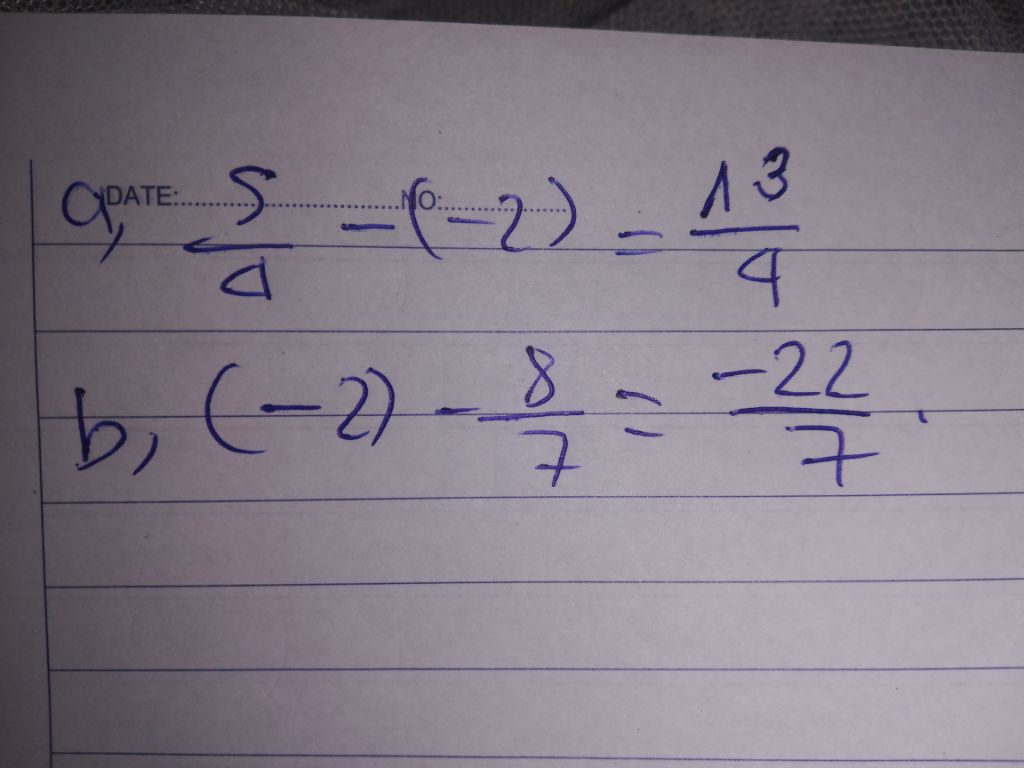 DATE: NO:
a, 5/4 - (-2) = 13/4
b, (-2) - 8/7 = -22/7.